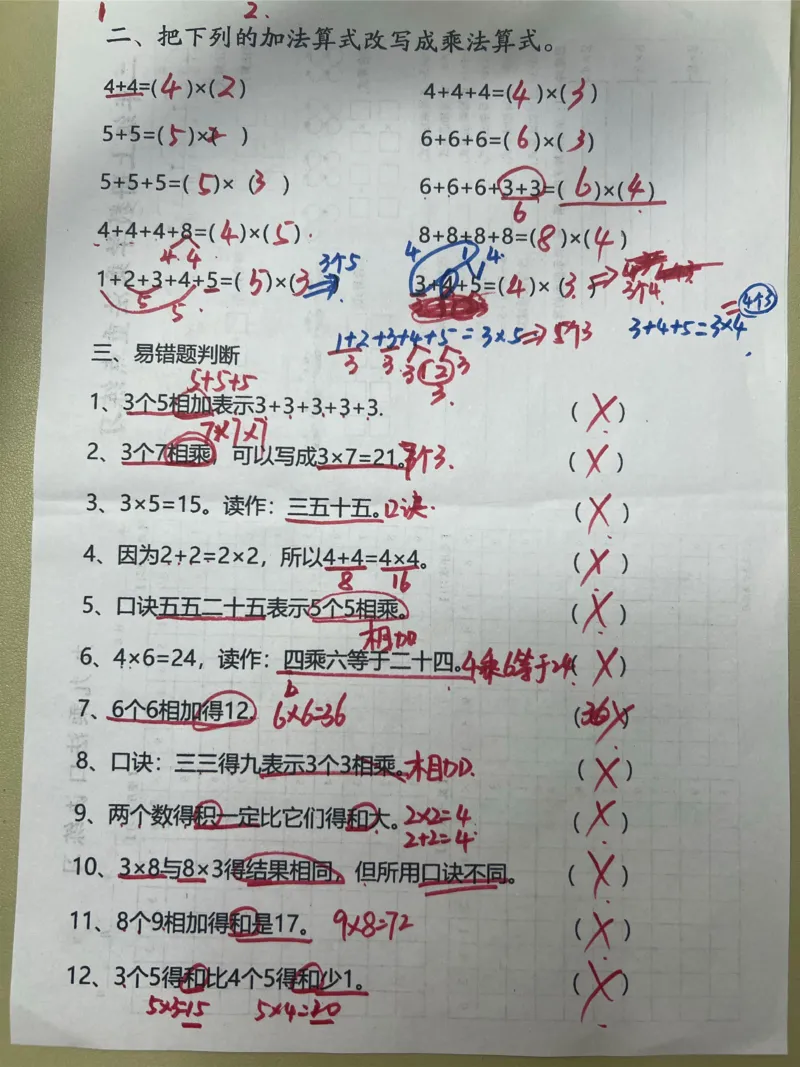 1 2.
二、把下列的加法算式改写成乘法算式。
4+4=(4)×(2) 4+4+4=(4)×(3)
5+5=(5)×( ) 6+6+6=(6)×(3)
5+5+5=(5)×(3) 6+6+6+3+3=(6)×(4)
6
4+4+4+8=(4)×(5). 8+8+8+8=(8)×(4)
4 4 3个5 4 1 4
1+2+3+4+5=(5)×(3 3+4+5=(4)×(3.)⇒
5 3个4 =4个3
5 1+2+3+4+5=3×5⇒5个3 3+4+5=3×4
三、易错题判断 3 3 3 1 2 3
5+5+5 3.
1、3个5相加表示3+3+3+3+3. (X)
7×7×7
2、3个7相乘,可以写成3×7=21。7个3. (X)
3、3×5=15。读作:三五十五。口诀. (X)
4、因为2+2=2×2,所以4+4=4×4。 (X)
8 16
5、口诀五五二十五表示5个5相乘。 (X)
相加
6、4×6=24,读作:四乘六等于二十四。4乘6等于24 (X)
6
7、6个6相加得12. 6×6=36 (36X)
8、口诀:三三得九表示3个3相乘。相加. (X)
9、两个数得积一定比它们得和大。2×2=4 (X)
2+2=4
10、3×8与8×3得结果相同,但所用口诀不同。 (X)
11、8个9相加得和是17。 9×8=72 (X)
12、3个5得和比4个5得和少1。 (X)
5×3=15 5×4=20